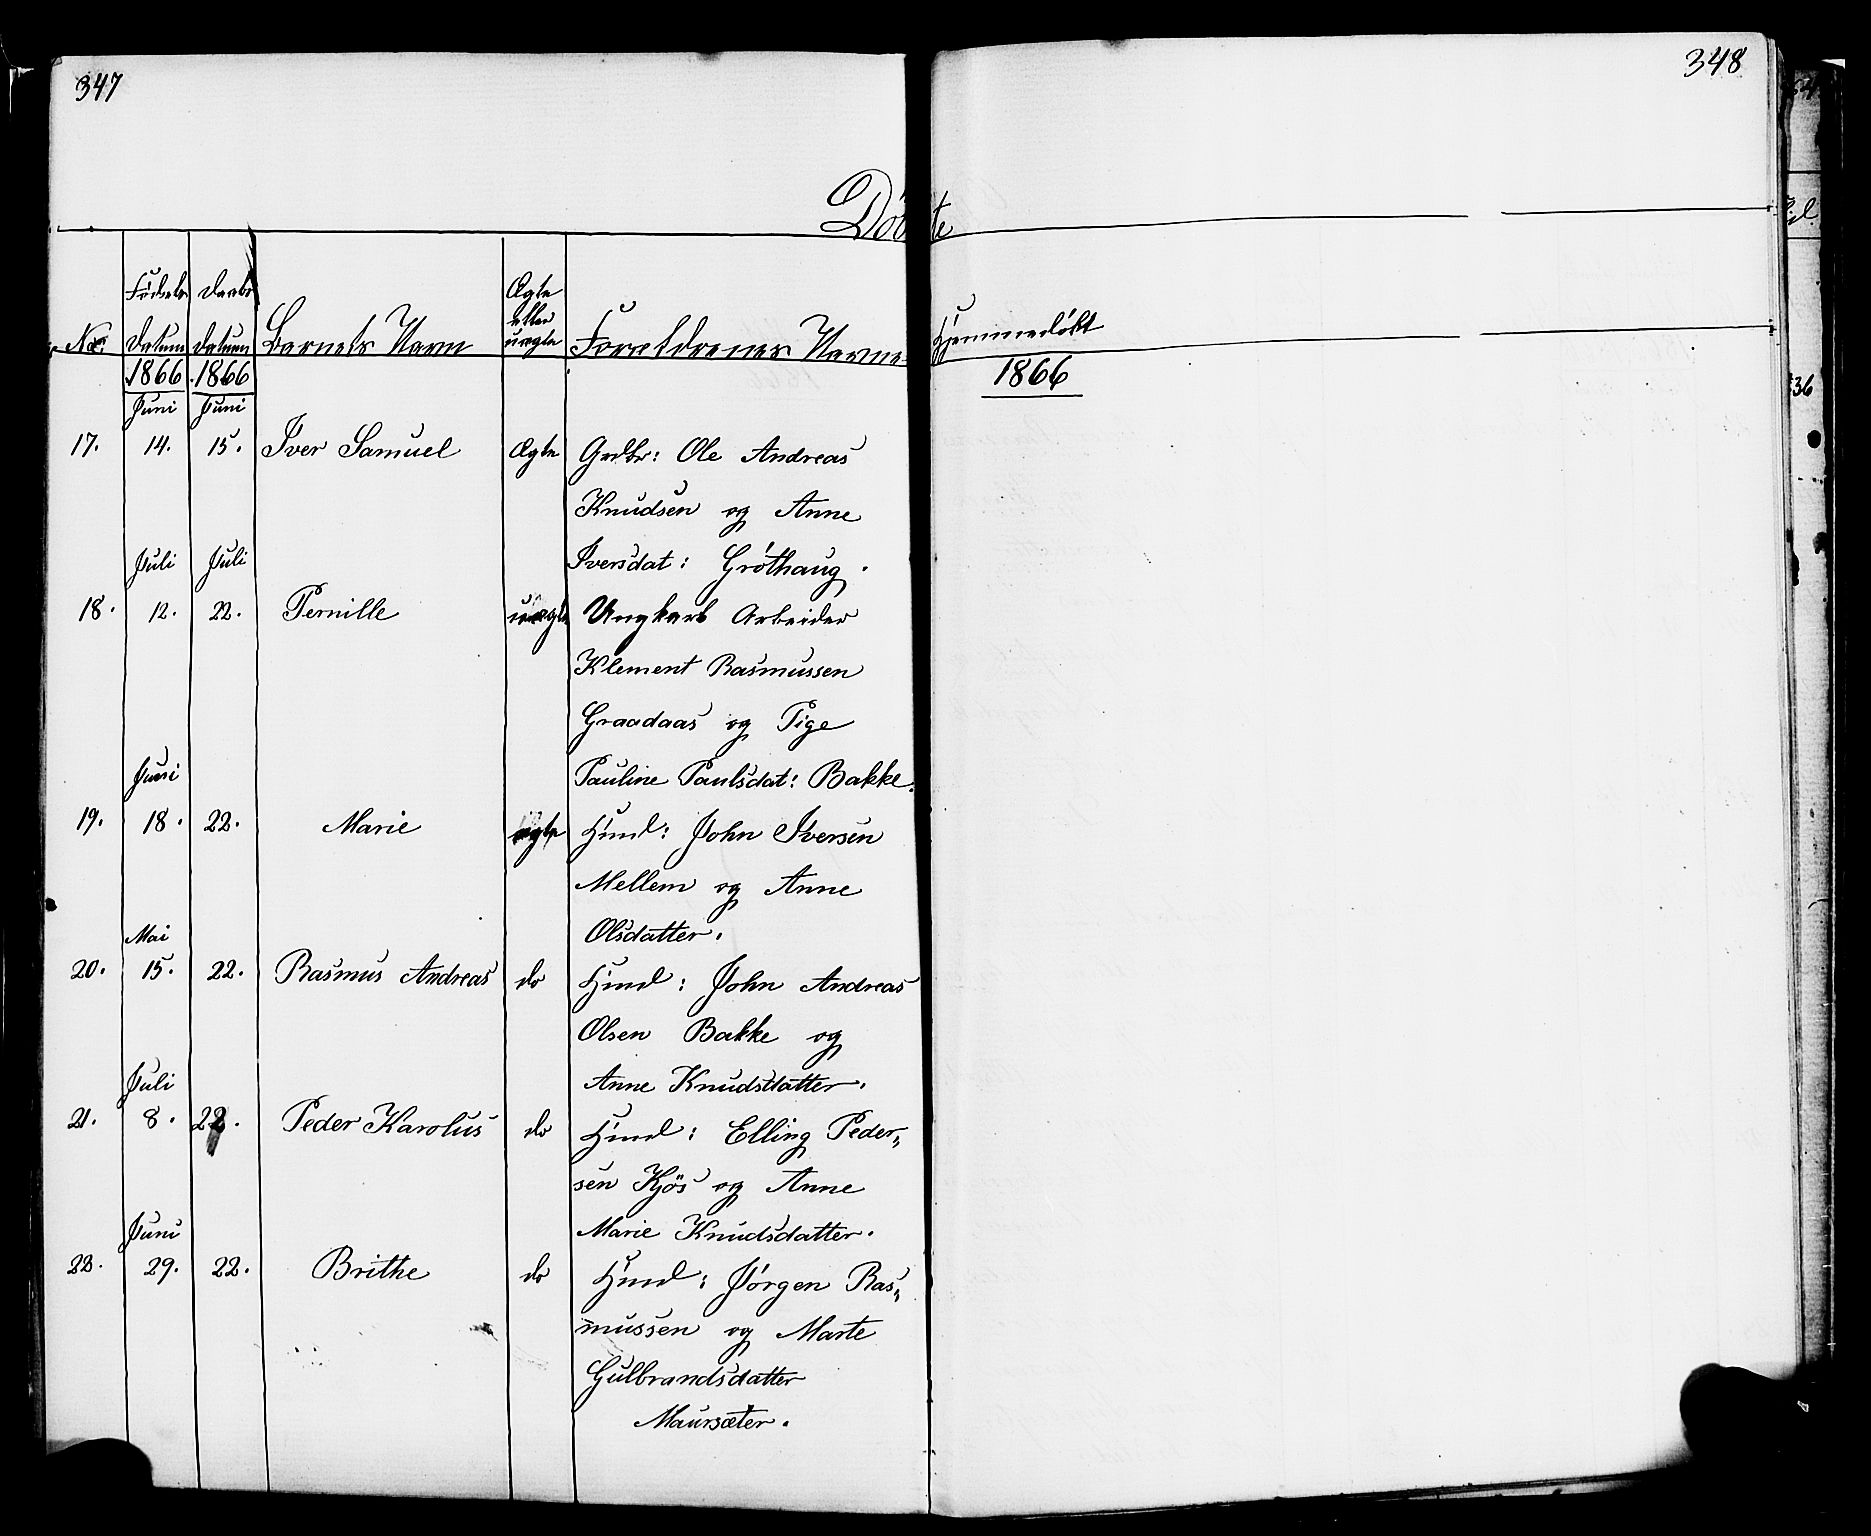 347
348
Døbte
No: Fødsels Datum Daabs Datum Barnets Navn Ægte eller uægte Forældrenes Navne Hjemmedøbt
1866 1866 1866
Juni Juni
17. 14. 15. Iver Samuel Ægte Grdbr: Ole Andreas
Knudsen og Anne
Iversdat: Gröthaug.
Juli Juli
18. 12. 22. Pernille uægte Ungkarl Arbeider
Klement Rasmussen
Graadaas og Pige
Pauline Paulsdat: Bakke.
Juni
19. 18. 22. Marie ægte Husmd: John Iversen
Mellem og Anne
Olsdatter.
Mai
20. 15. 22. Rasmus Andreas do Husmd: John Andreas
Olsen Bakke og
Anne Knudsdatter.
Juli
21. 8. 22. Peder Karolus do Husmd: Elling Peder„
sen Kjös og Anne
Marie Knudsdatter.
Juni
22. 29. 22. Brithe do Husmd: Jørgen Ras„
mussen og Marte
Gulbrandsdatter
Maursæter.
36